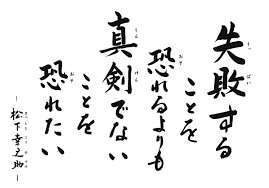 失敗する
ことを
恐れるよりも
真剣でない
ことを
恐れたい
－松下幸之助－